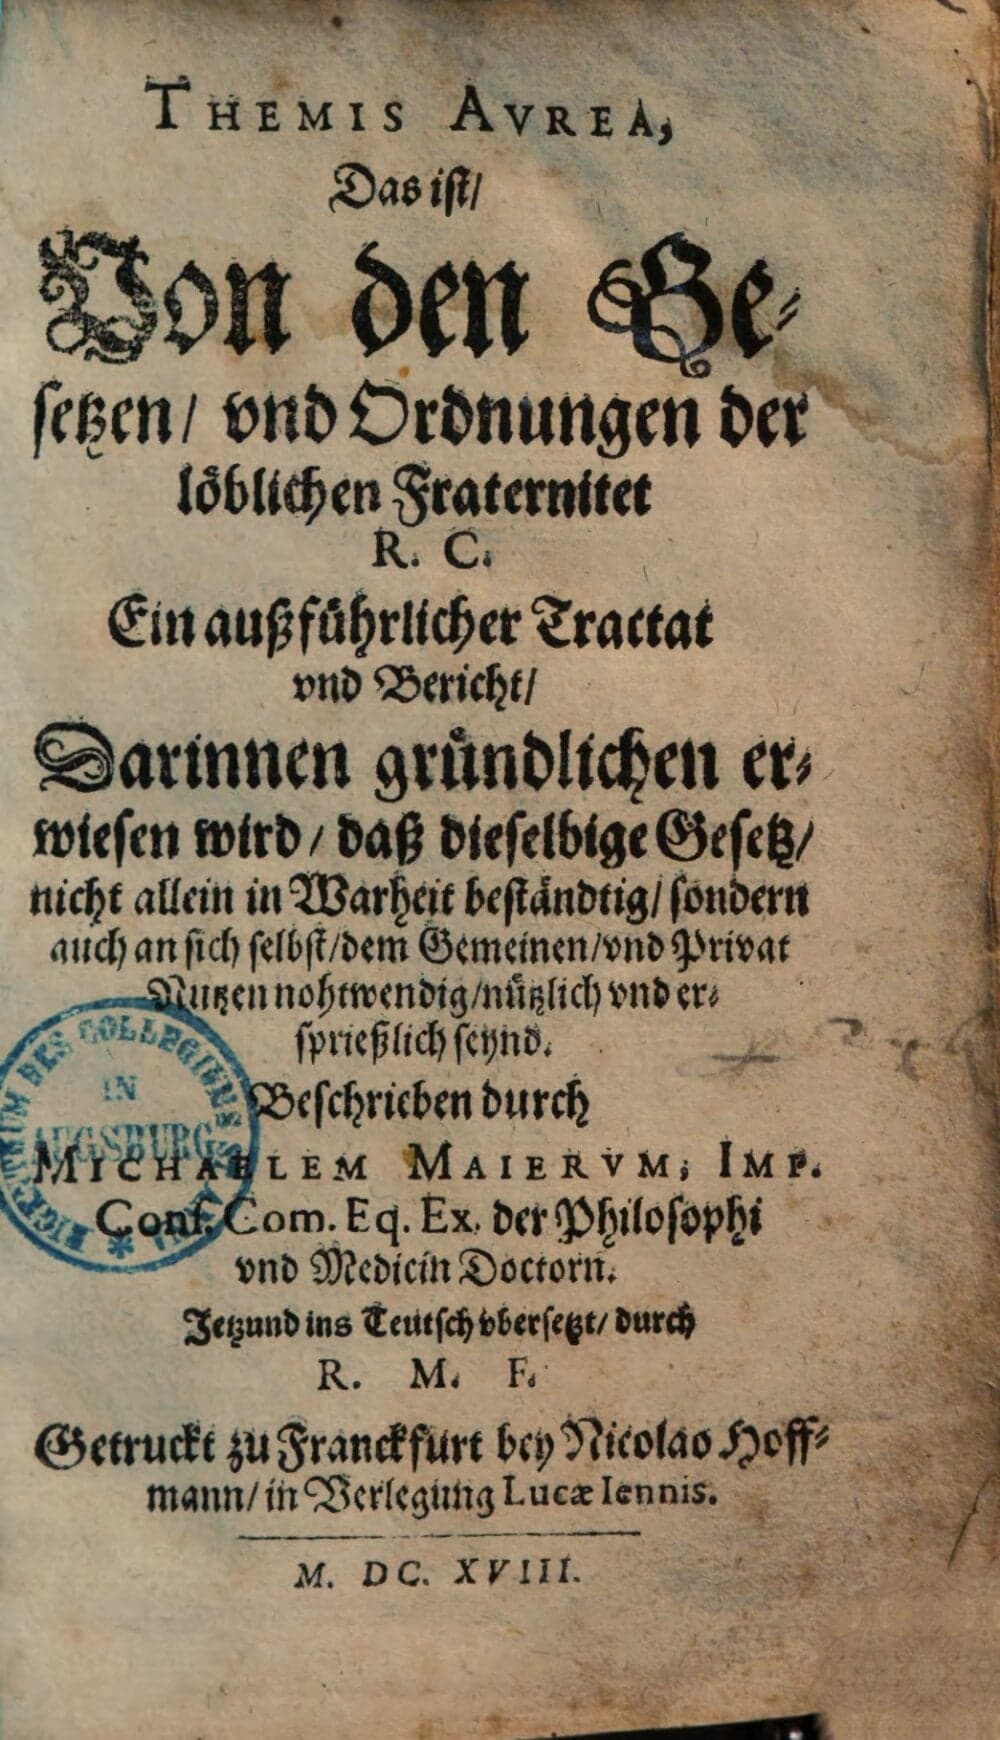 THEMIS AVREA,
Das ist/
Von den Ge-
setzen/ vnd Ordnungen der
löblichen Fraternitet
R. C.
Ein außführlicher Tractat
vnd Bericht/
Darinnen gründlichen er-
wiesen wird/ daß dieselbige Gesetz/
nicht allein in Warheit beständtig/ sondern
auch an sich selbst/ dem Gemeinen/ vnd Privat
Nutzen nohtwendig/ nützlich vnd er-
sprießlich seynd.
Beschrieben durch
MICHAELEM MAIERVM, IMP.
Conf. Com. Eq. Ex. der Philosophi
vnd Medicin Doctorn.
Jetzund ins Teutsch vbersetzt/ durch
R. M. F.
Getruckt zu Franckfurt bey Nicolao Hoff-
mann/ in Verlegung Lucæ Iennis.
M. DC. XVIII.
DES COLLEGIUMS
IN
AUGSBURG